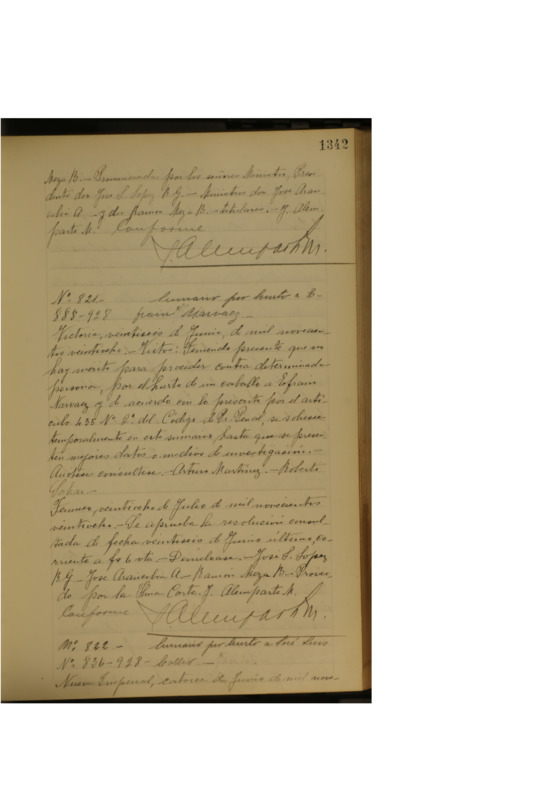 1342
Meza B.- Pronunciada por los señores Ministros, Presi-
dente don José S. López R G.- Ministros don José Aran-
cibia A - y don Ramon Meza B.- titulares.- J. Alem-
parte M. Conforme
J Alemparte M.
Nº 821- Sumario por hurto a E-
888-928 frain Narvaez-
Victoria, veintiseis de Junio, de mil novecien-
tos veintiocho.- Vistos: Teniendo presente que no
hay merito para proceder contra determinada
persona, por el hurto de un caballo a Efrain
Narvaez y de acuerdo con lo prescrito por el arti-
culo 435 Nº 2º del Código de Pr Penal, se sobresee
temporalmente en este sumario, hasta que se presen-
ten mejores datos o medios de investigación.-
Anótese consúltese.- Arturo Martinez.- Roberto
Temuco, veintiocho de Julio de mil novecientos
veintiocho.- Se aprueba la resolución consul-
tada de fecha veintiseis de Junio último, co-
rriente a fs 6 vta - Devuélvase.- José S. López
R G - José Arancibia A - Ramon Meza B - Provei-
do por la Iltma Corte. J. Alemparte M.
Conforme J. Alemparte M.
Nº 822 - Sumario por hurto a José Luis
Nº 836-928-
Nueva Imperial, catorce de Junio de mil nove-